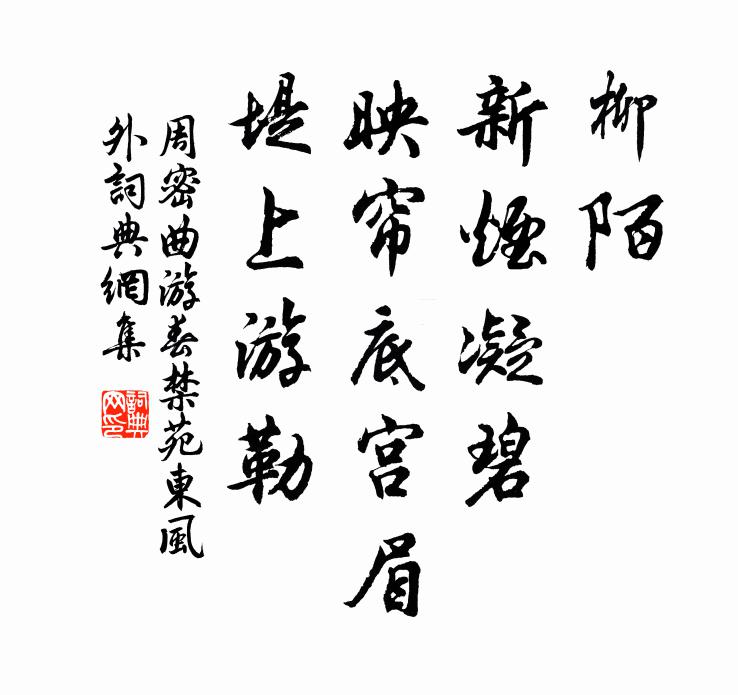 柳陌
新煙凝碧
映帘底宫眉
堤上游勒
周密曲游春禁苑東風
外詞典網集
詞典网印